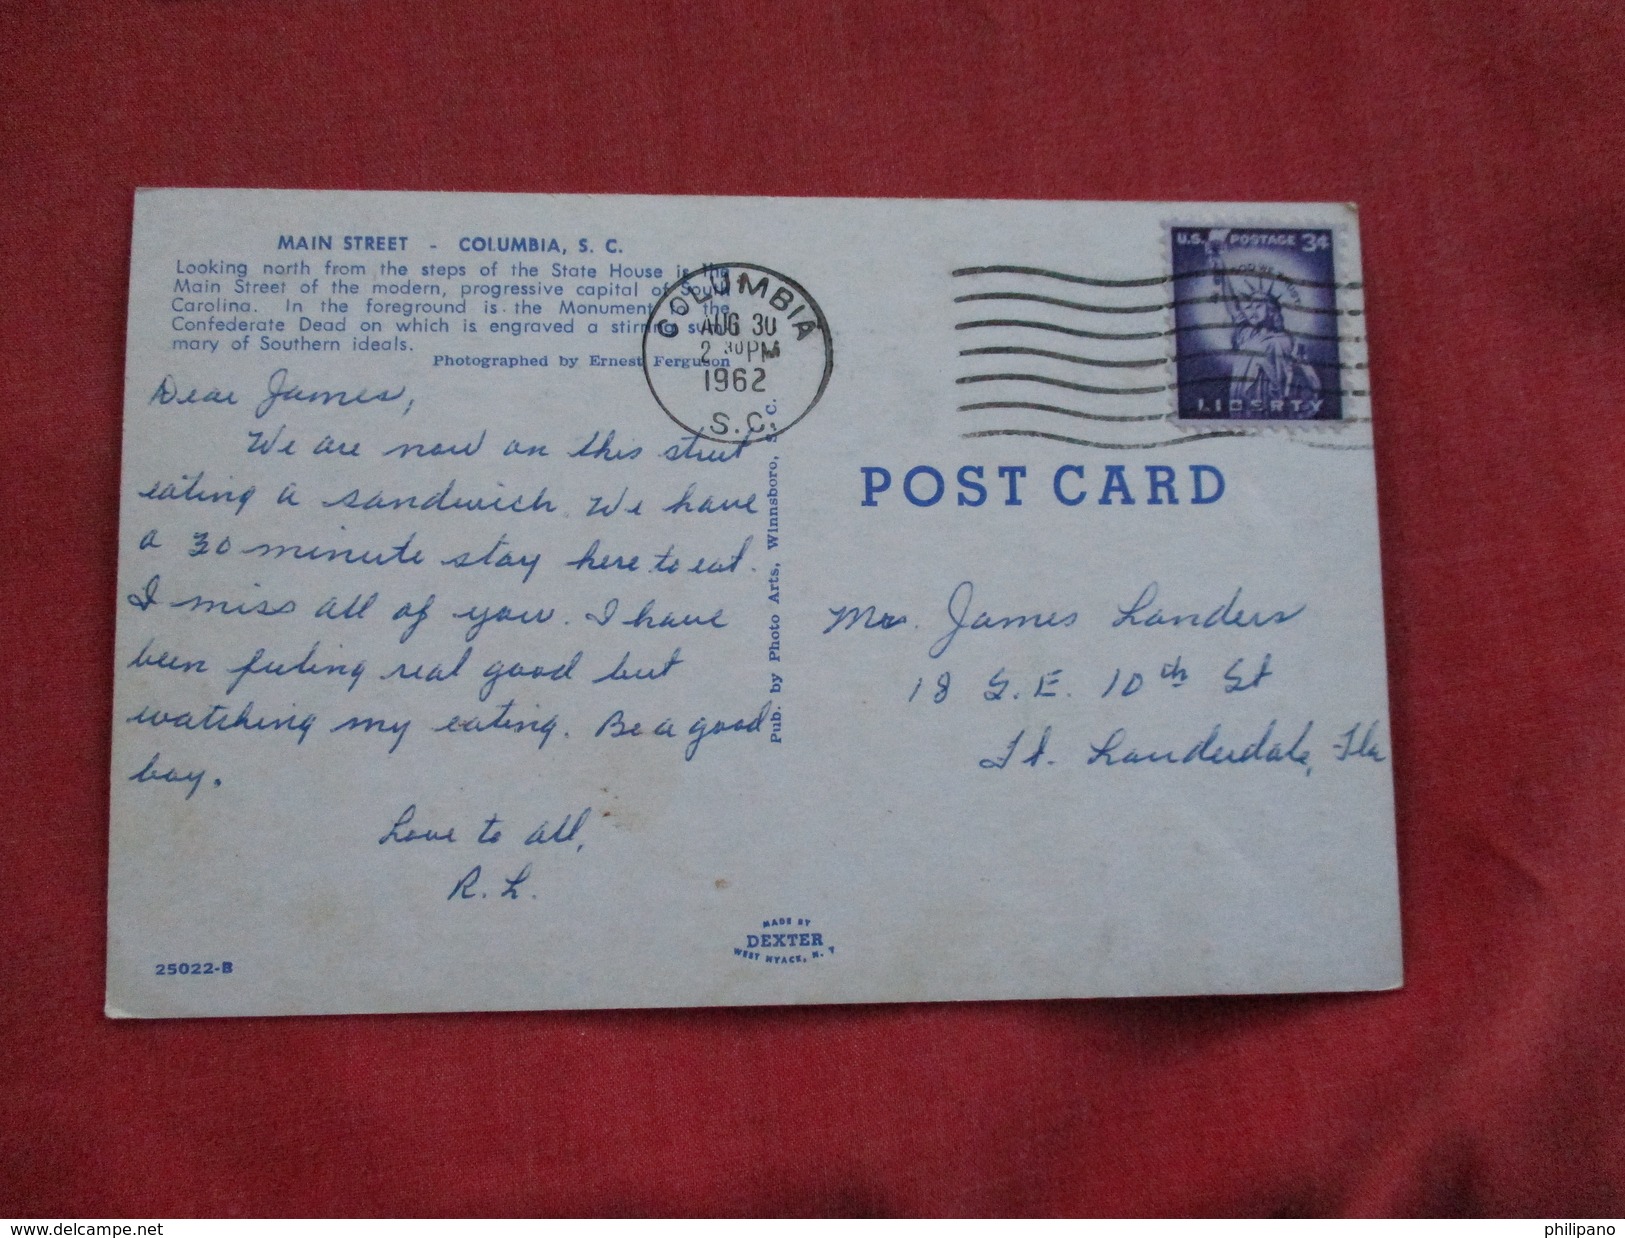 MAIN STREET - COLUMBIA, S. C.
Looking north from the steps of the State House is the
Main Street of the modern, progressive capital of South
Carolina. In the foreground is the Monument to the
Confederate Dead on which is engraved a stirring sum-
mary of Southern ideals.
Photographed by Ernest Ferguson
COLUMBIA
AUG 30
2 30 PM
1962
S.C.
U.S. POSTAGE 3¢
IN GOD WE TRUST
LIBERTY
Dear James,
We are now on this street
eating a sandwich. We have
a 30 minute stay here to eat.
I miss all of you. I have
been feeling real good but
watching my eating. Be a good
boy.
Love to all,
R. L.
Pub. by Photo Arts, Winnsboro, S. C.
POST CARD
Mr. James Landers
18 S.E. 10th St
Ft. Lauderdale, Fla
MADE BY
DEXTER
WEST NYACK, N. Y
25022-B
www.delcampe.net
philipano